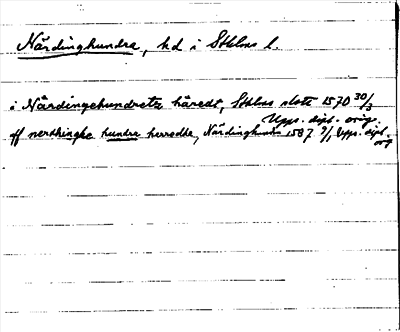 Närdinghundra, hd i Sthlms l.
i Närdingehundretz häredt, Sthlms slott 1570 30/3
Upps. dipl. orig.
aff nerthinghe hundra herredhe, Närdinghun 1587 7/1 Upps. dipl.
orig